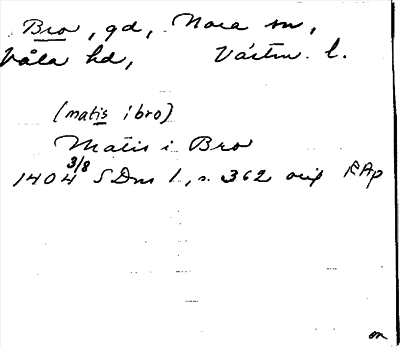 Bro, gd, Nora sn,
Våla hd, Västm. l.
(matis i bro)
Matis i Bro
1404 3/8 SDns 1, s. 362 orig RAp